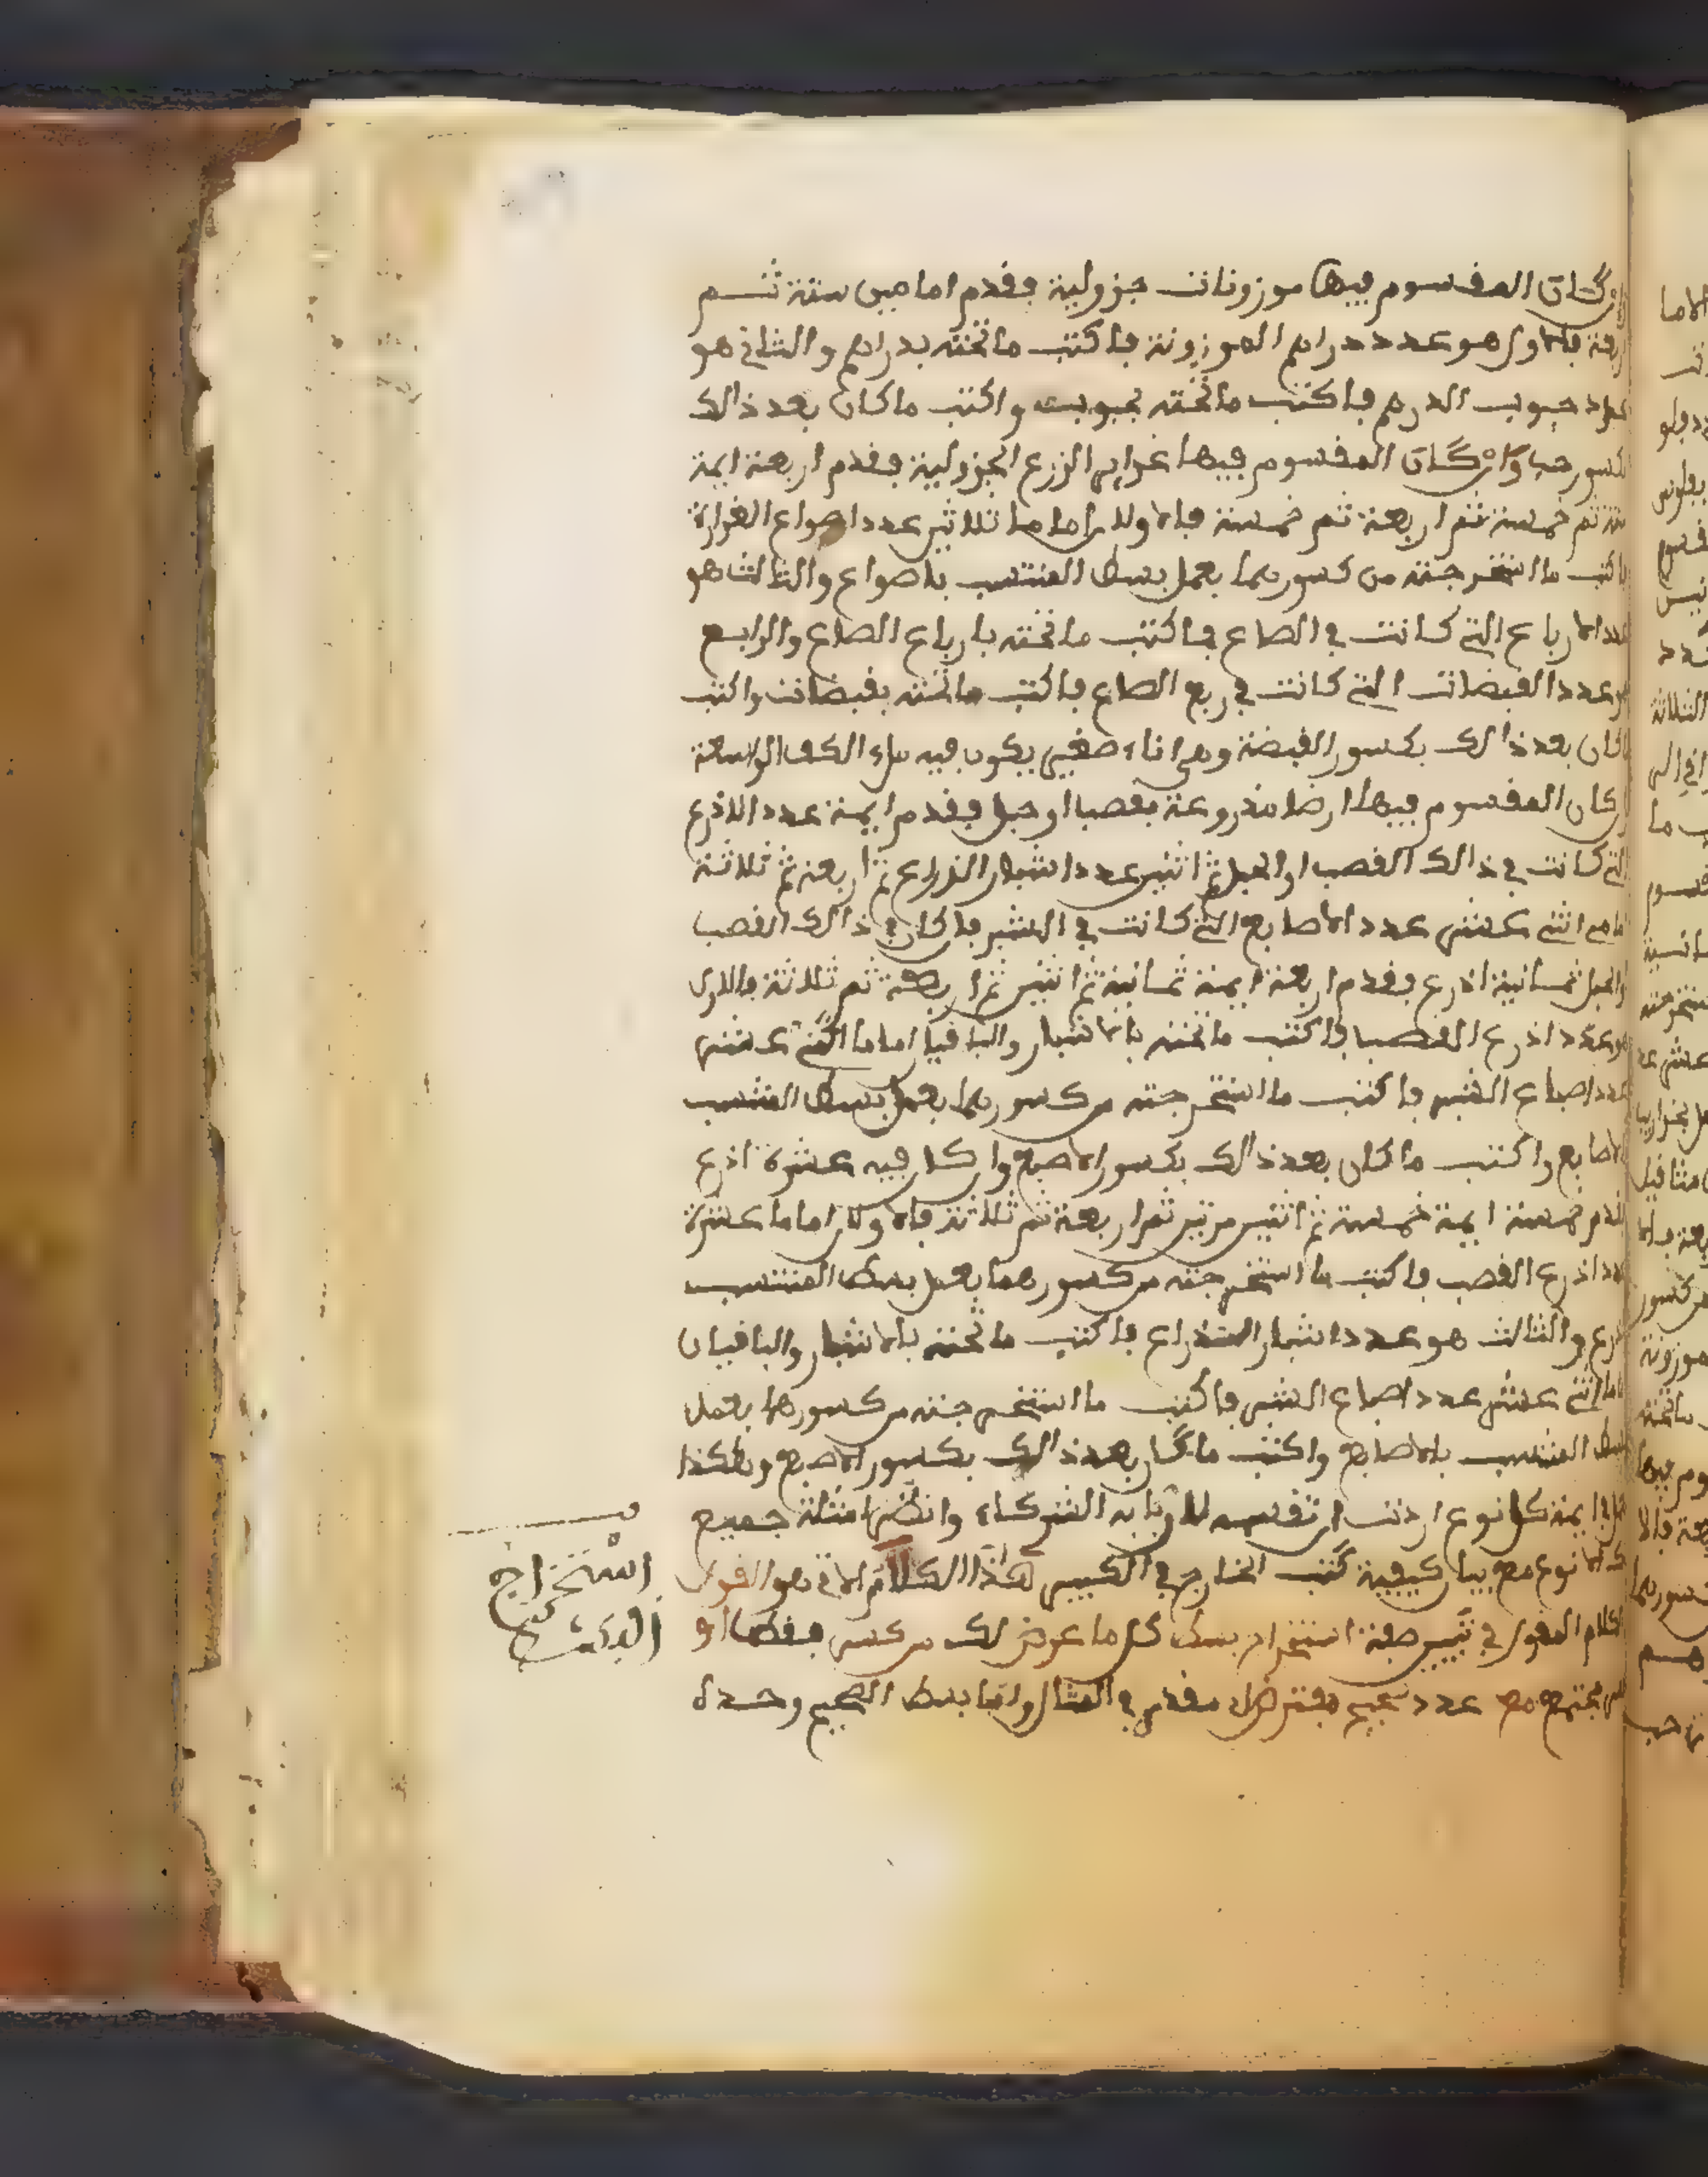 وان كان المقسوم فيها موزونات جزولية فقدم امامين ستة ثم
اربعة فالاول هو عدد دراهم الموزونة فاكتب ما تحته بدراهم والثاني هو
عدد حبوب الدرهم فاكتب ما تحته بحبوب واكتب ما كان بعد ذالك
بكسور حب وان كان المقسوم فيها غراير الزرع الجزولية فقدم اربعة ايمة
ستة ثم خمسة ثم اربعة ثم خمسة فالاولان اماما ثلاثين عدد اصواع الغرارة
فاكتب ما استخرجته من كسورهما بعمل بسط المنتسب باصواع والثالث هو
عدد الارباع التي كانت في الصاع فاكتب ما تحته بارباع الصاع والرابع
هو عدد القبضات التي كانت في ربع الصاع فاكتب ما تحته بقبضات واكتب
ما كان بعد ذالك بكسور القبضة وهي اناء صغير يكون فيه ملء الكف الواسعة
وان كان المقسوم فيها ارضا مذروعة بقصب او حبل فقدم ايمة عدد الاذرع
التي كانت في ذالك القصب او الحبل ثم اثنين عدد اشبار الذراع ثم اربعة ثم ثلاثة
امامي اثني عشر عدد الاصابع التي كانت في الشبر فان كان في ذالك القصب
او الحبل ثمانية اذرع فقدم اربعة ايمة ثمانية ثم اثنين ثم اربعة ثم ثلاثة فالاول
هو عدد اذرع القصب فاكتب ما تحته بالاشبار والباقيان اماما اثني عشر
عدد اصباع الشبر فاكتب ما استخرجته من كسورهما بعمل بسط المنتسب
بالاصابع واكتب ما كان بعد ذالك بكسور الاصبع وان كان فيه عشرة اذرع
فقدم خمسة ايمة خمسة ثم اثنين مرتين ثم اربعة ثم ثلاثة فالاولان اماما عشرة
عدد اذرع القصب فاكتب ما استخرجته من كسورهما بعمل بسط المنتسب
باذرع والثالث هو عدد اشبار الذراع فاكتب ما تحته بالاشبار والباقيان
اماما اثني عشر عدد اصباع الشبر فاكتب ما استخرجته من كسورهما بعمل
بسط المنتسب بالاصابع واكتب ما كان بعد ذالك بكسور الاصبع وهكذا
في ايمة كل نوع اردت ان تقسمه لاربابه الشركاء وانظر امثلة جميع
الانواع مع بيان كيفية كتب الخارج في الكبير هذا الكلام الاتي هو القول
الكلام المقول في تبيين صفة استخراج بسط كل ما عرض لك من كسر فقط او
كسر مجتمع مع عدد صحيح مفترض له مقدم في المثال واما بسط الصحيح وحده
استخراج
البسط